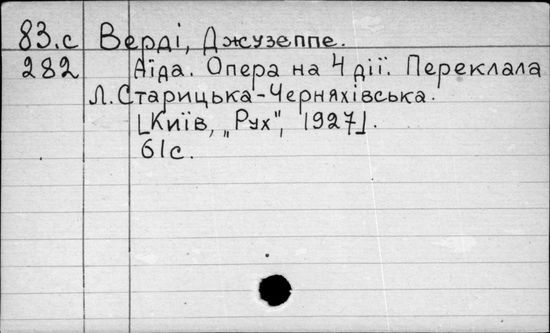 83.с Верді, Джузеппе.
282 Аїда. Опера на 4 дії. Переклала
Л. Старицька-Черняхівська.
[Київ, „Рух", 1927].
61с.